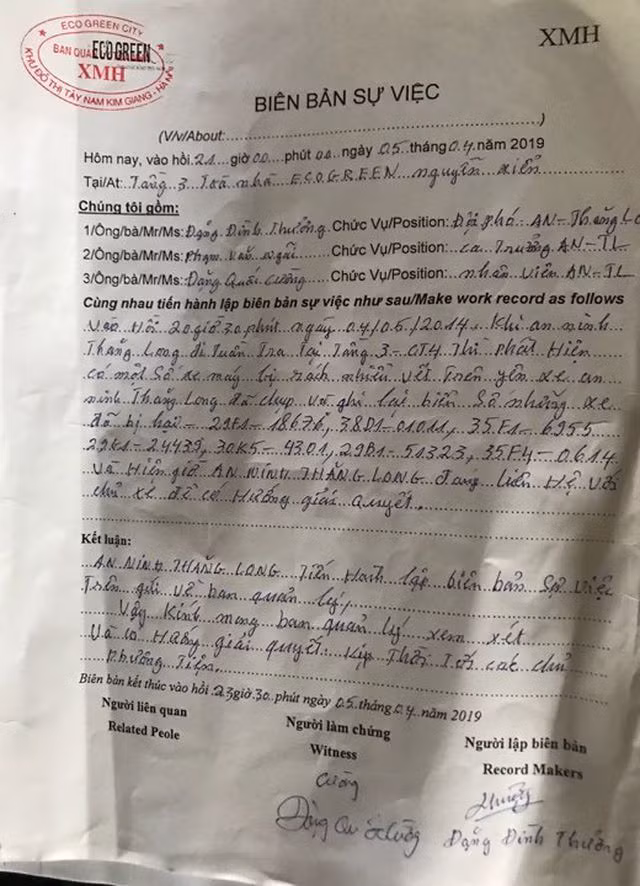 ECO GREEN CITY
BAN QUẢ ECOGREEN
XMH
KHU ĐÔ THỊ TÂY NAM KIM GIANG - HÀ NỘI
XMH
BIÊN BẢN SỰ VIỆC
(V/v/About:.....)
Hôm nay, vào hồi 21 giờ 00 phút ngày 05 tháng 04 năm 2019
Tại/At: Tầng 3 Toà nhà ECOGREEN nguyễn xiển
Chúng tôi gồm:
1/Ông/bà/Mr/Ms: Đặng Đình Thưởng Chức Vụ/Position: Đội phó AN-Thăng Lo
2/Ông/bà/Mr/Ms: Phạm Văn Chức Vụ/Position: ca Trưởng AN-TL
3/Ông/bà/Mr/Ms: Đặng Quốc Cường Chức Vụ/Position: nhân viên AN-TL
Cùng nhau tiến hành lập biên bản sự việc như sau/Make work record as follows
Vào Hồi 20 giờ 30 phút ngày Khi an ninh
Thăng Long đi Tuần Tra Tại Tầng 3 - CT4 Thì phát Hiện
có một Số xe máy bị rách nhiều vết Trên yên xe an
ninh Thăng Long đã chụp và ghi lại biển Số những xe
đã bị hại - 29F1-18676, 38D1-01011, 35F1-6955
29K1-24439, 30K5-4301, 29B1-51323, 35F4-0614
Và Hiện giờ AN NINH THĂNG LONG đang liên Hệ Với
chủ xe để có Hướng giải quyết.
Kết luận:
AN NINH THĂNG LONG Tiến Hành lập biên bản Sự Việc
Trên gửi về ban quản lý,
Vậy Kính mong ban quản lý xem xét
Và có Hướng giải quyết Kịp Thời Tới các chủ
phương Tiện.
Biên bản kết thúc vào hồi 23 giờ 30 phút ngày 05 tháng 04 năm 2019
Người liên quan Người làm chứng Người lập biên bản
Related Peole Witness Record Makers
Cường Thưởng
Đặng Quốc Cường Đặng Đình Thưởng